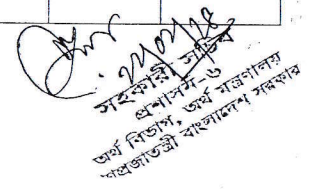 সহকারী সচিব
প্রশাসন-৩
অর্থ বিভাগ, অর্থ মন্ত্রণালয়
গণপ্রজাতন্ত্রী বাংলাদেশ সরকার